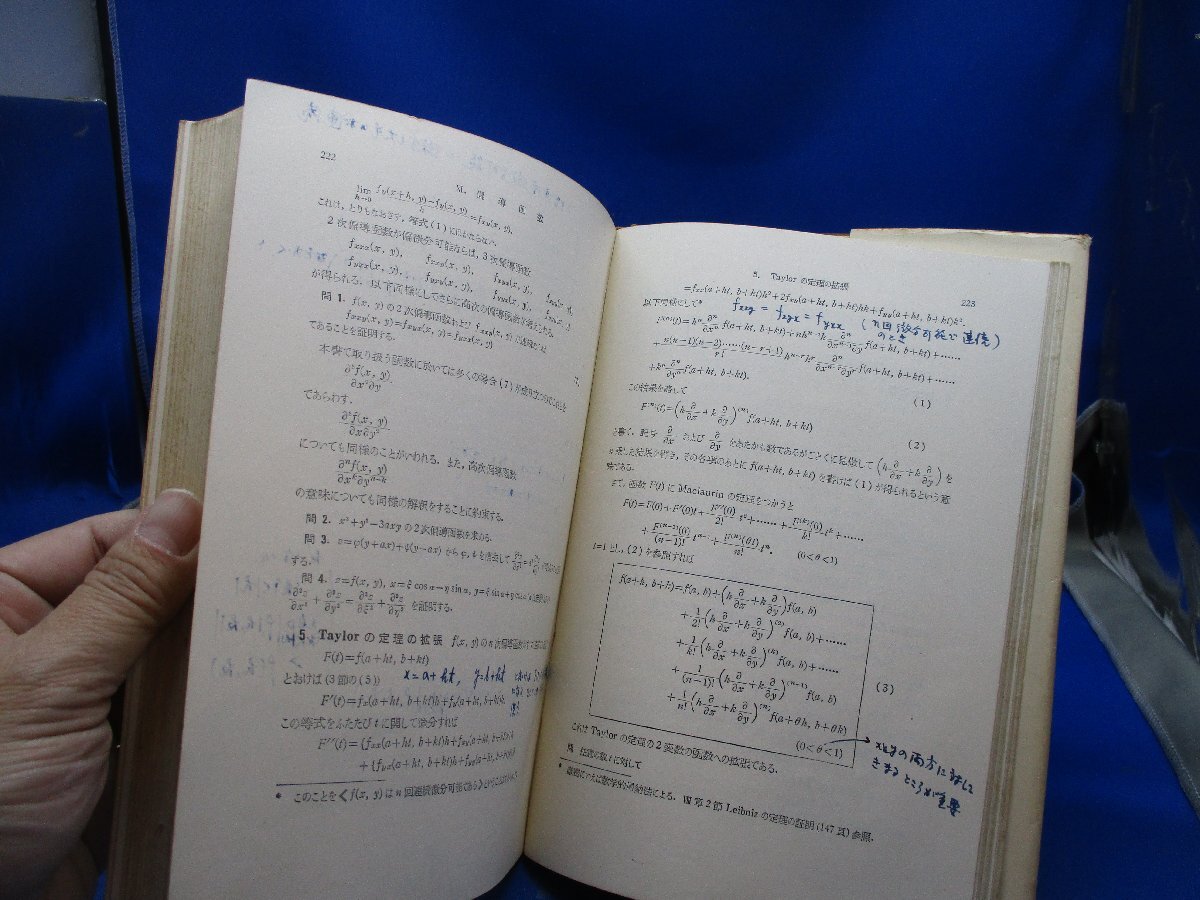 222
VI. 偏導函数
lim h→0 (fy(x+h, y)−fy(x, y))/h = fxy(x, y).
これは,とりもなおさず,等式(1)にほかならない.
2次偏導函数が偏微分可能ならば,3次偏導函数
fxxx(x, y), fxxy(x, y),
fyxx(x, y), fyxy(x, y),
が得られる.以下同様にしてさらに高次の偏導函数が考えられる.
問 1. f(x, y) の2次偏導函数および
fxxy(x, y)=fxyx(x, y)=fyxx(x, y)
であることを証明する.
本書で取り扱う函数に於いては多くの場合(7)
∂³f(x, y)/∂x²∂y
であらわす.
∂³f(x, y)/∂x∂y²
についても同様のことがいわれる.また,高次偏導函数
∂ⁿf(x, y)/∂xᵏ∂yⁿ⁻ᵏ
の意味についても同様の解釈をすることに約束する.
問 2. x³+y³−3axy の2次偏導函数を求める.
問 3. z=φ(y+ax)+ψ(y−ax) から φ, ψ を消去して
する.
問 4. z=f(x, y), x=ξ cos α−η sin α, y=ξ sin α+η cos α
∂²z/∂x²+∂²z/∂y²=∂²z/∂ξ²+∂²z/∂η² を証明する.
5. Taylor の定理の拡張 f(x, y) の n 次偏導函数
F(t)=f(a+ht, b+kt)
とおけば (3節の(5)) x=a+ht, y=b+kt
F′(t)=fx(a+ht, b+kt)h+fy(a+ht, b+kt)k
この等式をふたたび t に関して微分すれば
F′′(t)={fxx(a+ht, b+kt)h+fxy(a+ht, b+kt)k}h
+{fyx(a+ht, b+kt)h+fyy(a+ht, b+kt)k}k
* このことを<f(x, y) は n 回連続微分可能である>
5. Taylor の定理の拡張
223
=fxx(a+ht, b+kt)h²+2fxy(a+ht, b+kt)hk+fyy(a+ht, b+kt)k².
以下同様にして* fxxy = fxyx = fyxx (n回微分可能で連続)
のとき
F⁽ⁿ⁾(t)=hⁿ ∂ⁿ/∂xⁿ f(a+ht, b+kt)+nhⁿ⁻¹k ∂ⁿ/∂xⁿ⁻¹∂y f(a+ht, b+kt)+……
+n(n−1)(n−2)……(n−r+1)/r! hⁿ⁻ʳkʳ ∂ⁿ/∂xⁿ⁻ʳ∂yʳ f(a+ht, b+kt)+……
+kⁿ ∂ⁿ/∂yⁿ f(a+ht, b+kt).
(1)
この結果を略して
F⁽ⁿ⁾(t)=(h ∂/∂x+k ∂/∂y)⁽ⁿ⁾f(a+ht, b+kt)
(2)
と書く.記号 ∂/∂x および ∂/∂y をあたかも数であるがごとくに見做して (h ∂/∂x+k ∂/∂y)ⁿ を
その各項のあとに f(a+ht, b+kt) を書けば(1)が得られるという意
味である.
さて,函数 F(t) に Maclaurin の定理をつかうと
F(t)=F(0)+F′(0)t+F′′(0)/2! t²+……+F⁽ᵏ⁾(0)/k! tᵏ
+F⁽ⁿ⁻¹⁾(0)/(n−1)! tⁿ⁻¹+F⁽ⁿ⁾(θt)/n! tⁿ. (0<θ<1)
t=1 とし,(2)を参照すれば
f(a+h, b+k)=f(a, b)+(h ∂/∂x+k ∂/∂y)f(a, b)
+1/2!(h ∂/∂x+k ∂/∂y)⁽²⁾f(a, b)+……
+1/k!(h ∂/∂x+k ∂/∂y)⁽ᵏ⁾f(a, b)+……
+1/(n−1)!(h ∂/∂x+k ∂/∂y)⁽ⁿ⁻¹⁾f(a, b)
+1/n!(h ∂/∂x+k ∂/∂y)⁽ⁿ⁾f(a+θh, b+θk)
(0<θ<1)
(3)
これは Taylor の定理の2変数の函数への拡張である.
xとyの両方に対して
きまるところが重要
問 任意の数 t に対して
* 厳密にいえば数学的帰納法による.IV章2節 Leibniz の定理の証明(147頁)参照.